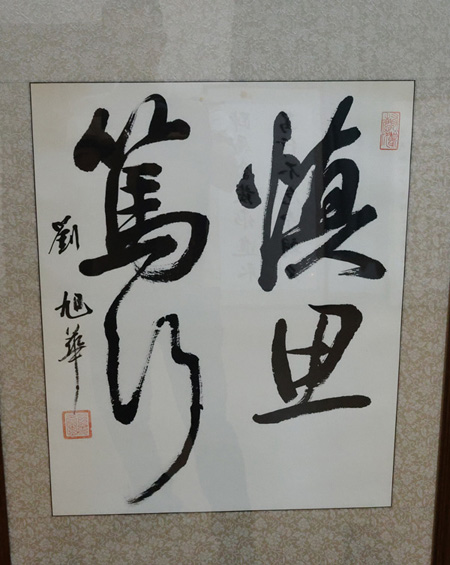 慎思
篤行
劉旭華